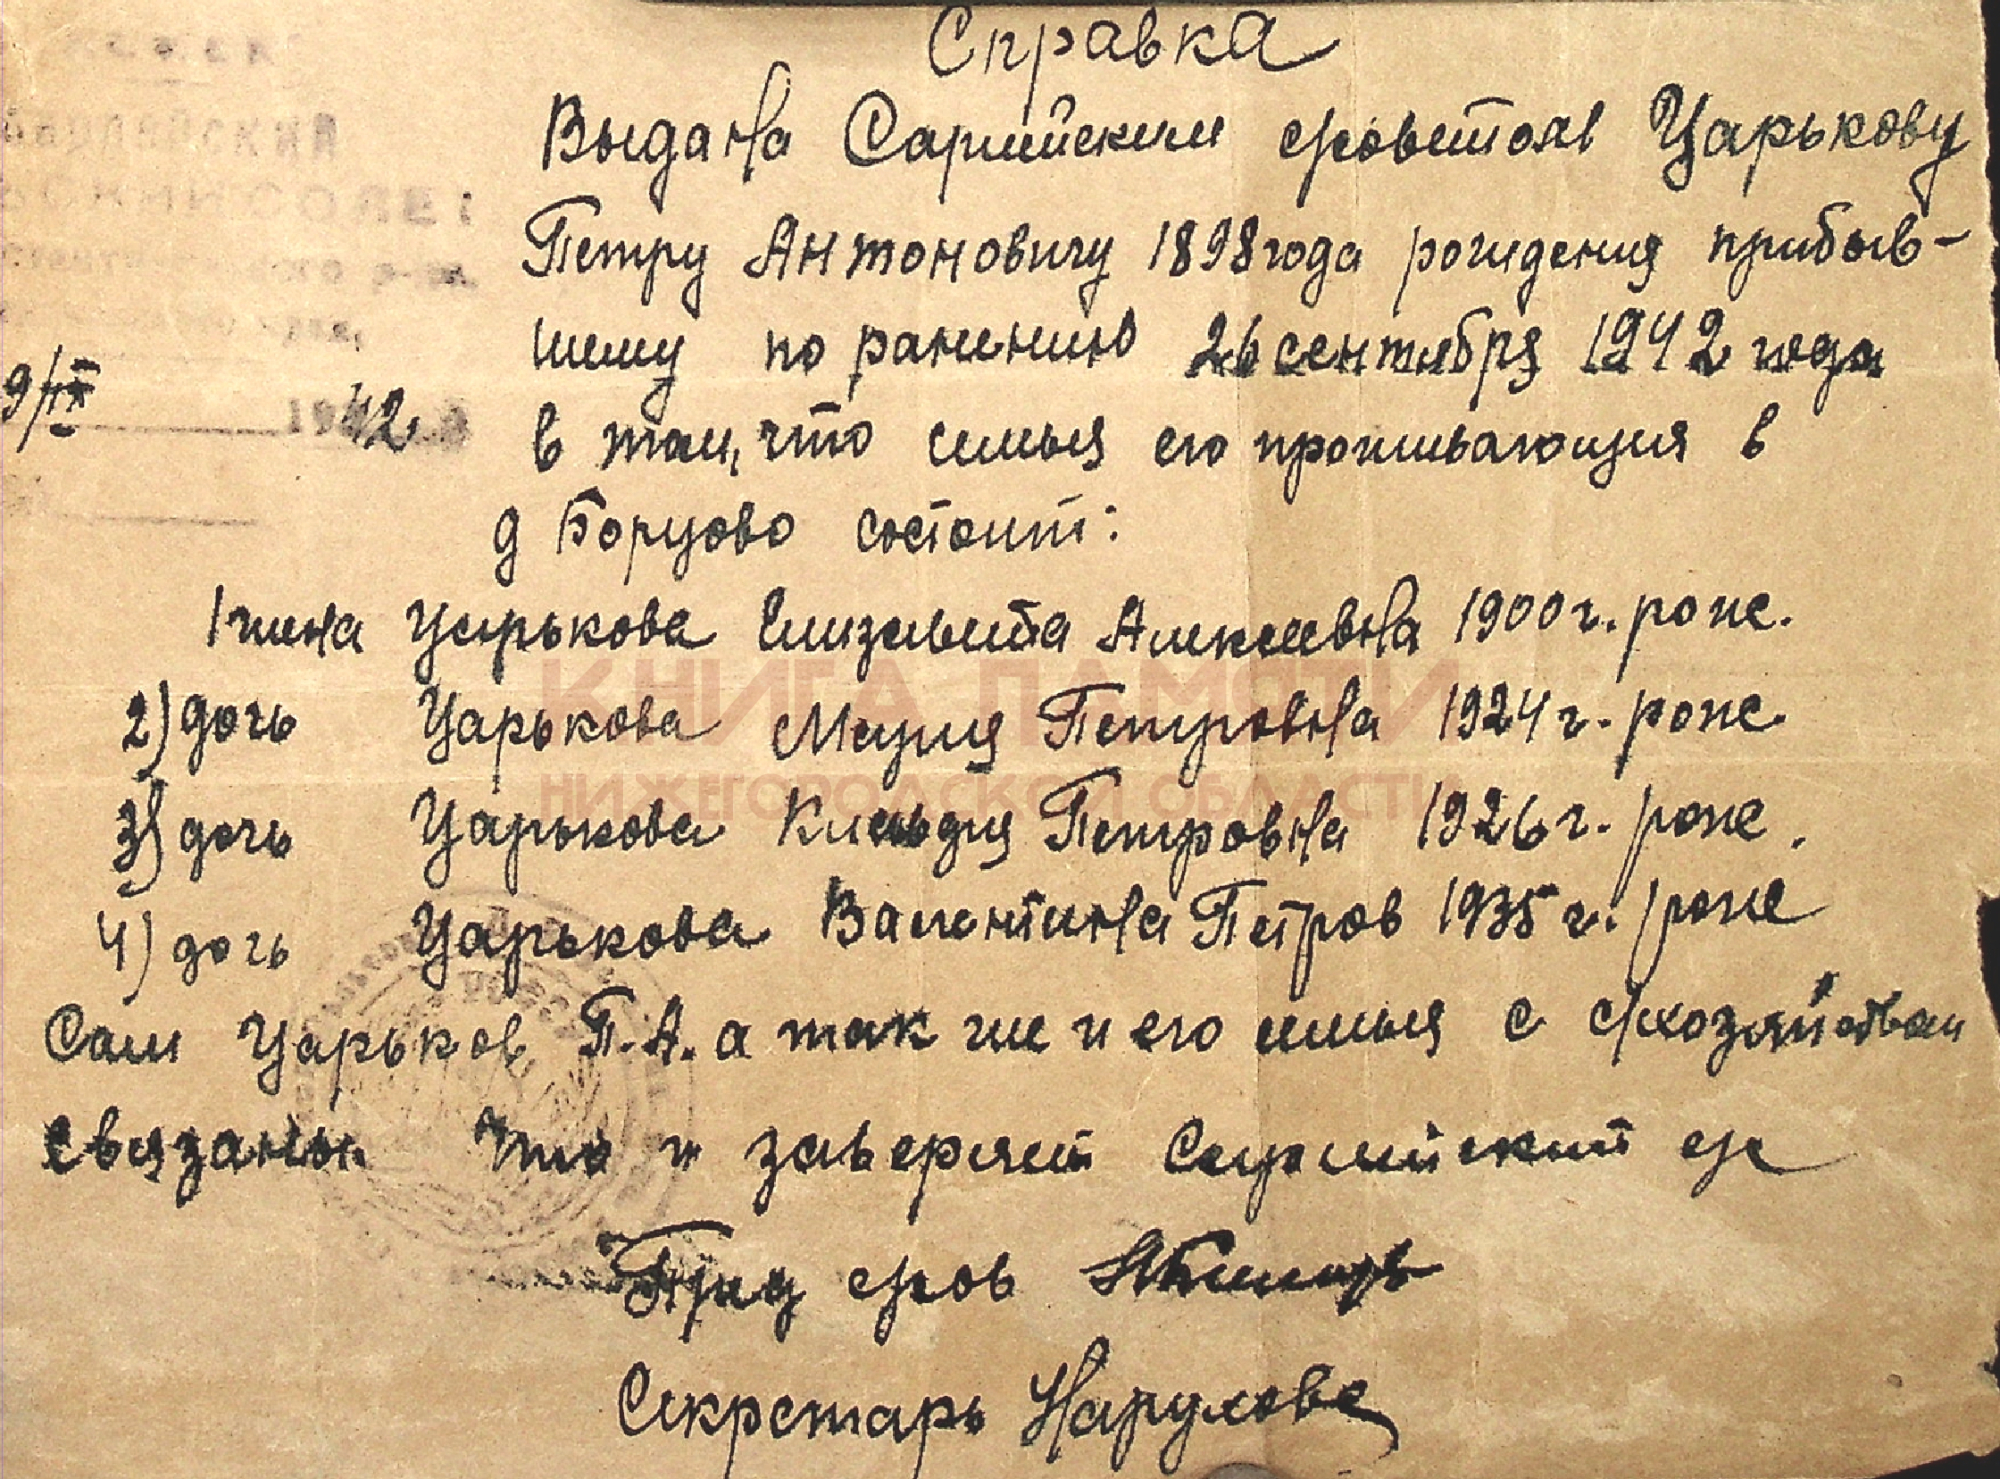 Справка
Выдана Сармийским с/советом Царькову
Петру Антоновичу 1898 года рождения прибыв-
шему по ранению 26 сентября 1942 года
в том, что семья его проживающия в
д Борцово состоит:
1 жена Царькова Елизавета Алексеевна 1900 г. рож.
2) дочь Царькова Мария Петровна 1924 г. рож.
3) дочь Царькова Клавдия Петровна 1926 г. рож.
4) дочь Царькова Валентина Петров 1935 г. рож
Сам Царьков П.А. а так же и его семья с с/хозяйством
связаны что и заверяет Сармийский с/с
Пред с/сов
Секретарь
9/IX 1942
КНИГА ПАМЯТИ
НИЖЕГОРОДСКОЙ ОБЛАСТИ